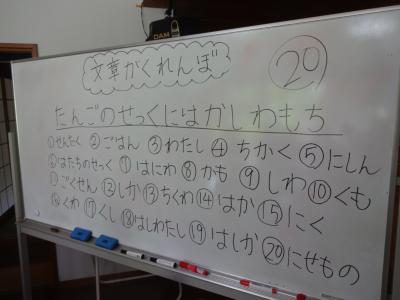 DAM
文章がくれんぼ
20
たんごのせっくにはかしわもち
①せんたく ②ごはん ③わたし ④ちかく ⑤にしん
⑥はたちのせっく ⑦はにわ ⑧かも ⑨しわ ⑩くも
⑪ごくせん ⑫しか ⑬ちくわ ⑭はか ⑮にく
⑯くわ ⑰くし ⑱はしわたし ⑲はしか ⑳にせもの